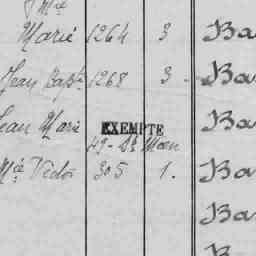 Marie 1264 3 Ba
Jean Bapte 1268 3 Ba
Jean Marie EXEMPTE Ba
49 - St Marc
Mie Victor 305 1. Ba
Ba
Ba